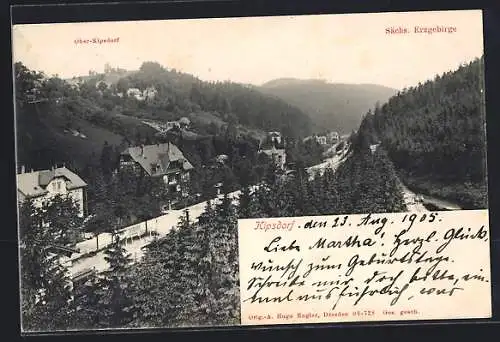 Ober-Kipsdorf
Sächs. Erzgebirge
Kipsdorf, den 23. Aug. 1905.
Liebe Martha! Herzl. Glück-
wünsch zum Geburtstage.
Schreibe mir doch bitte, ein-
mal ausführlich, was
Orig.-A. Hugo Engler, Dresden 04-728 Ges. gesch.